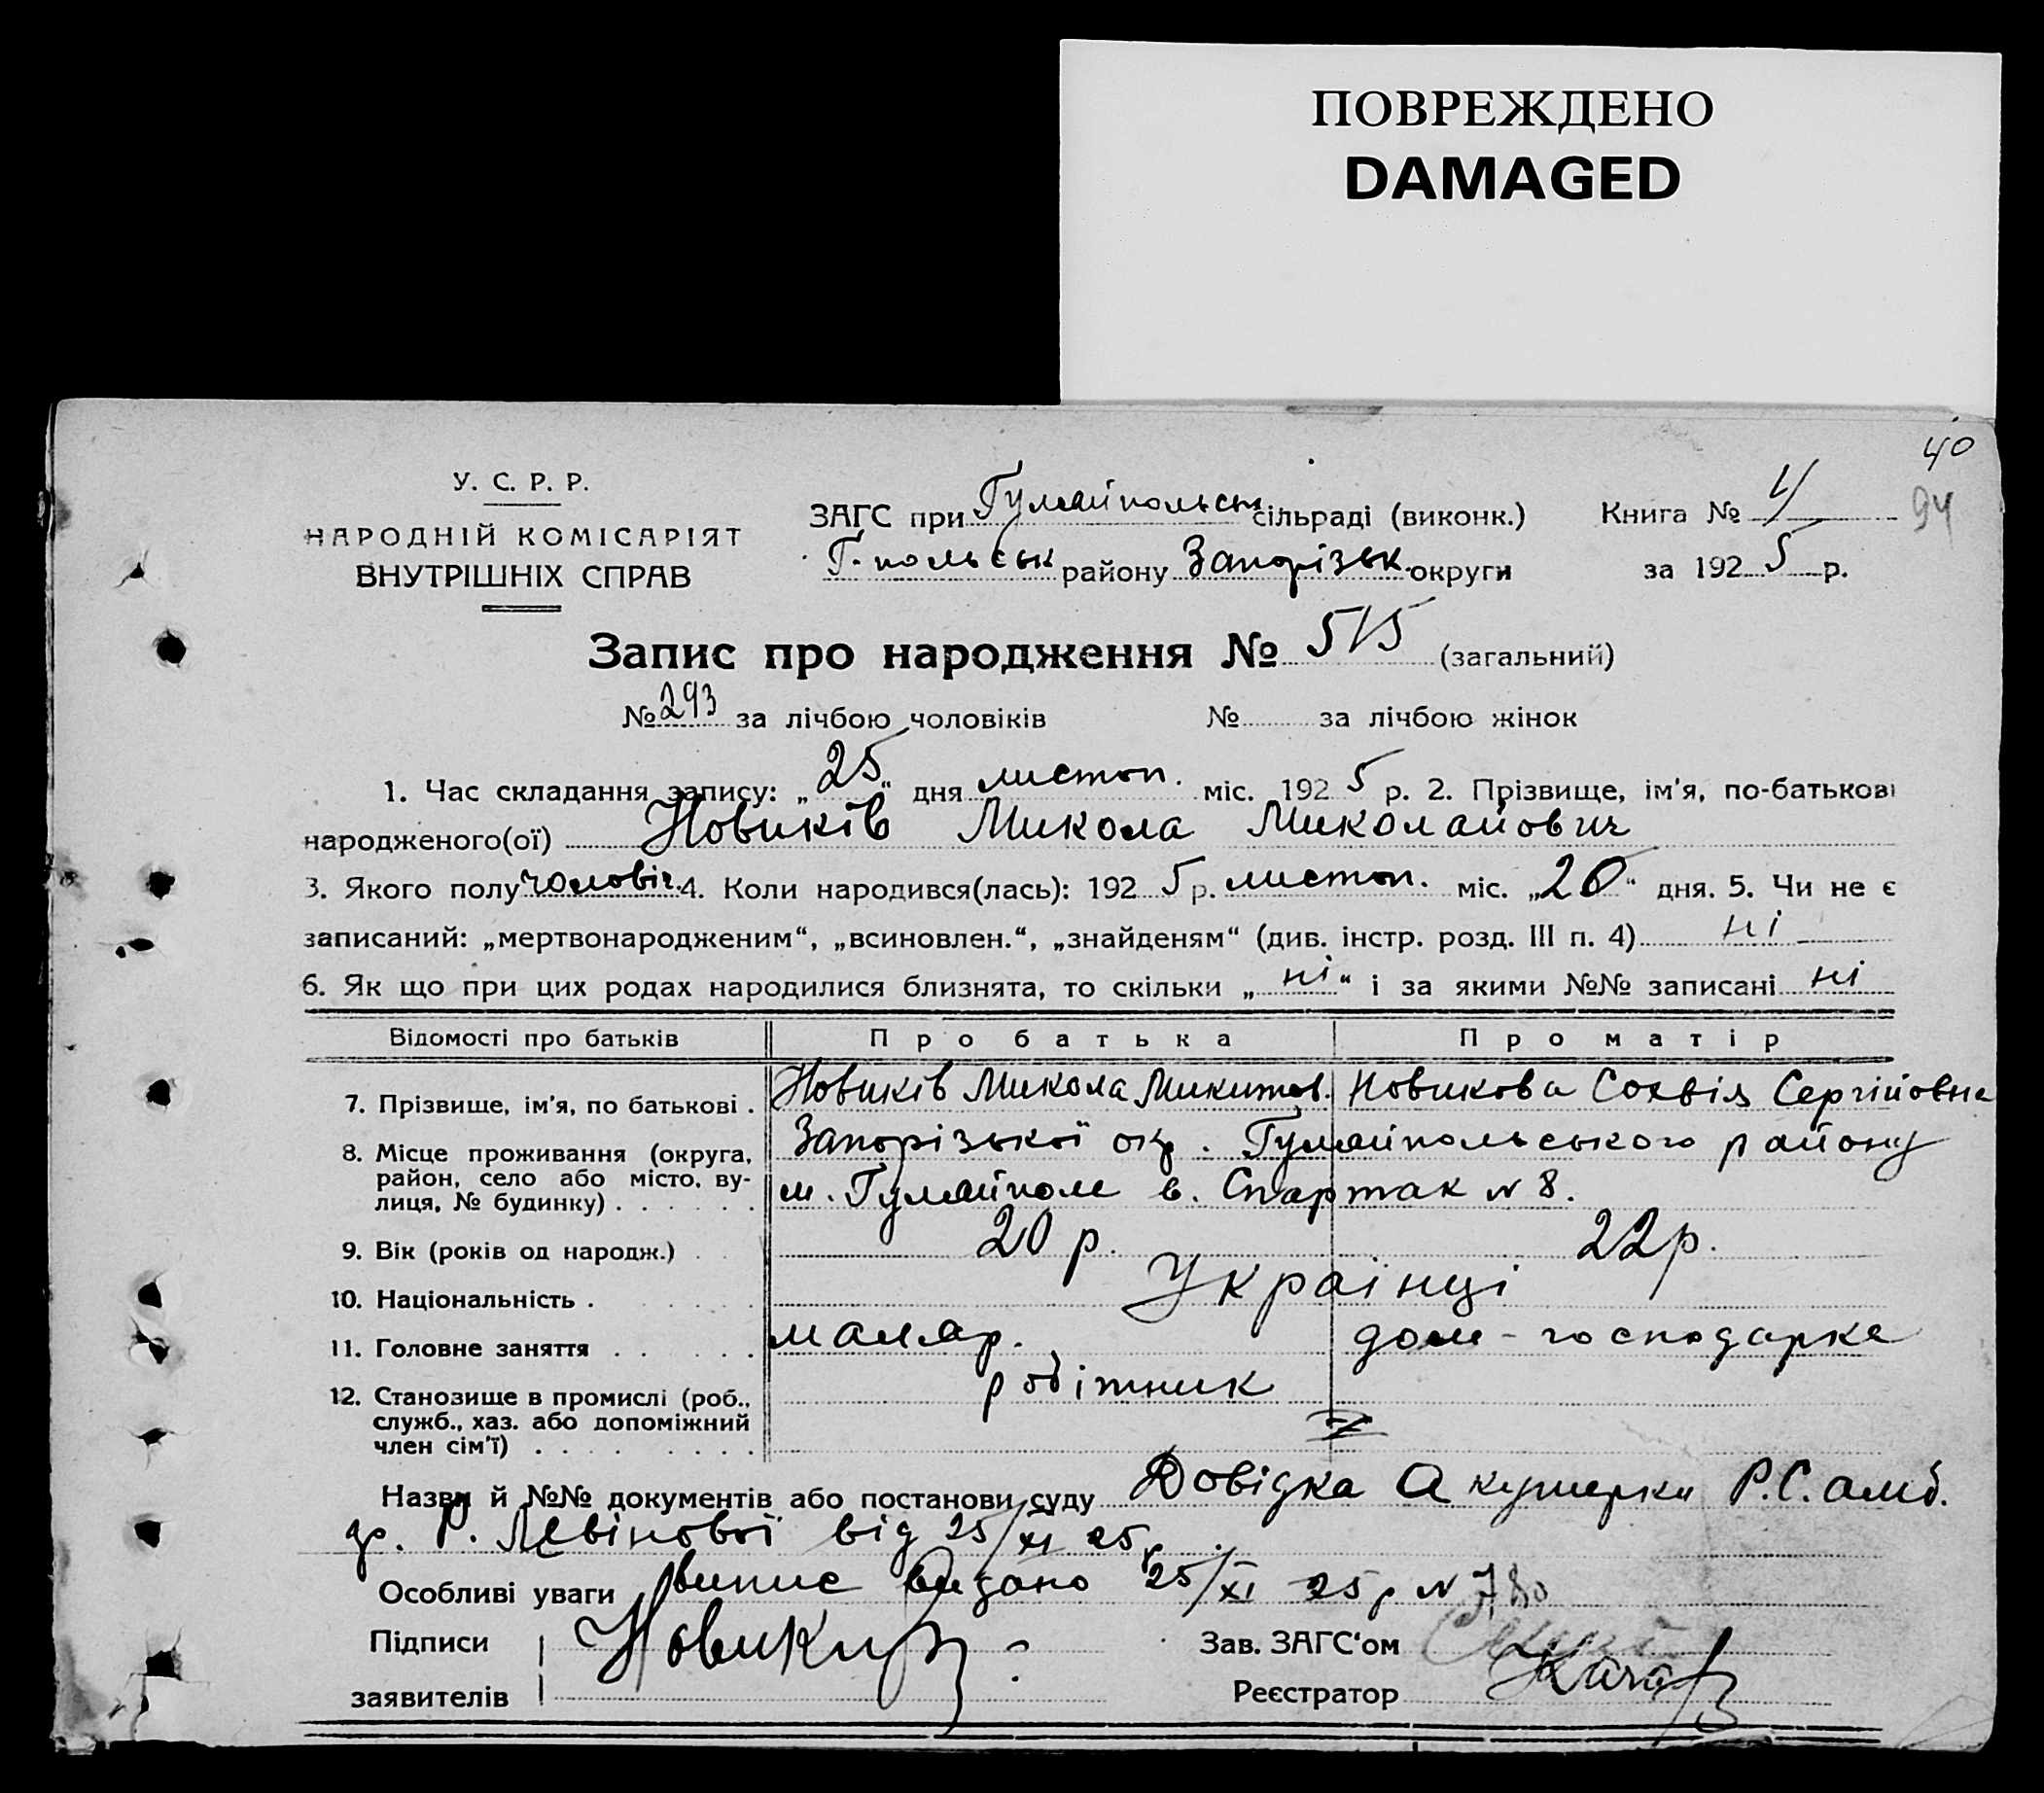 ПОВРЕЖДЕНО
DAMAGED
40
94
У. С. Р. Р.
НАРОДНІЙ КОМІСАРІЯТ
ВНУТРІШНІХ СПРАВ
ЗАГС при Гуляйпольськ сільраді (виконк.) Книга № 4
Г. польськ району Запорізьк. округи за 1925 р.
Запис про народження № 515 (загальний)
№ 293 за лічбою чоловіків № за лічбою жінок
1. Час складання запису: „25“ дня листоп. міс. 1925 р. 2. Прізвище, ім'я, по-батькові
народженого(ої) Новиків Микола Миколайович
3. Якого полу чоловіч. 4. Коли народився(лась): 1925 р. листоп. міс. „20“ дня. 5. Чи не є
записаний: „мертвонародженим“, „всиновлен.“, „знайденям“ (див. інстр. розд. III п. 4) ні
6. Як що при цих родах народилися близнята, то скільки „ні“ і за якими №№ записані ні
Відомості про батьків Про батька Про матір
7. Прізвище, ім'я, по батькові . Новиків Микола Микитов. Новикова Сохвія Сергійовна
8. Місце проживання (округа, Запорізької окр. Гуляйпольського району
район, село або місто, ву-
лиця, № будинку) . . . . . . м. Гуляйполе в. Спартак № 8.
9. Вік (років од народж.) . . 20 р. 22 р.
10. Національність . . . . . . Українці
11. Головне заняття . . . . . маляр. дом-господарка
12. Становище в промислі (роб., робітник
служб., хаз. або допоміжний
член сім'ї) . . . . . . . .
Назви й №№ документів або постанови суду Довідка Акушерки Р.С. амб.
гр. Р. Левінової від 25/XI 25р.
Особливі уваги Випис видано 25/XI 25р № 780
Підписи Новиків Зав. ЗАГС'ом
заявителів Реєстратор